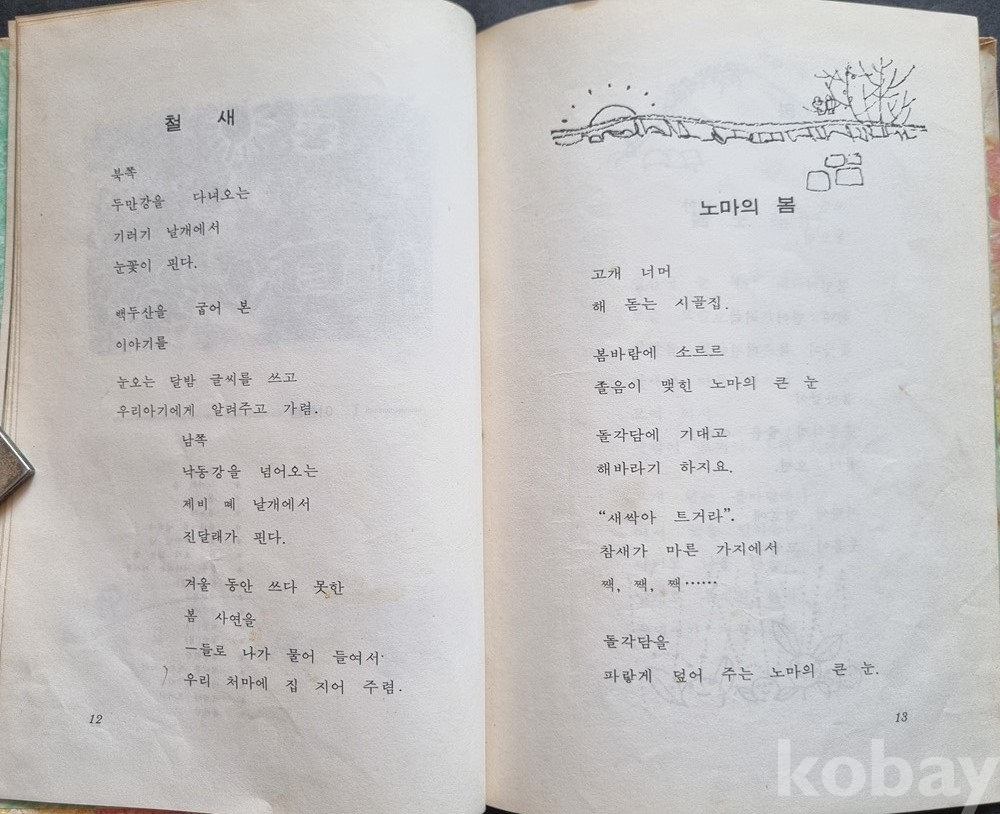 철 새
북쪽
두만강을 다녀오는
기러기 날개에서
눈꽃이 핀다.
백두산을 굽어 본
이야기를
눈오는 달밤 글씨를 쓰고
우리아기에게 알려주고 가렴.
남쪽
낙동강을 넘어오는
제비 떼 날개에서
진달래가 핀다.
겨울 동안 쓰다 못한
봄 사연을
―들로 나가 물어 들여서·
우리 처마에 집 지어 주렴.
12
노마의 봄
고개 너머
해 돋는 시골집.
봄바람에 소르르
졸음이 맺힌 노마의 큰 눈
돌각담에 기대고
해바라기 하지요.
“새싹아 트거라”.
참새가 마른 가지에서
짹, 짹, 짹……
돌각담을
파랗게 덮어 주는 노마의 큰 눈.
13
kobay